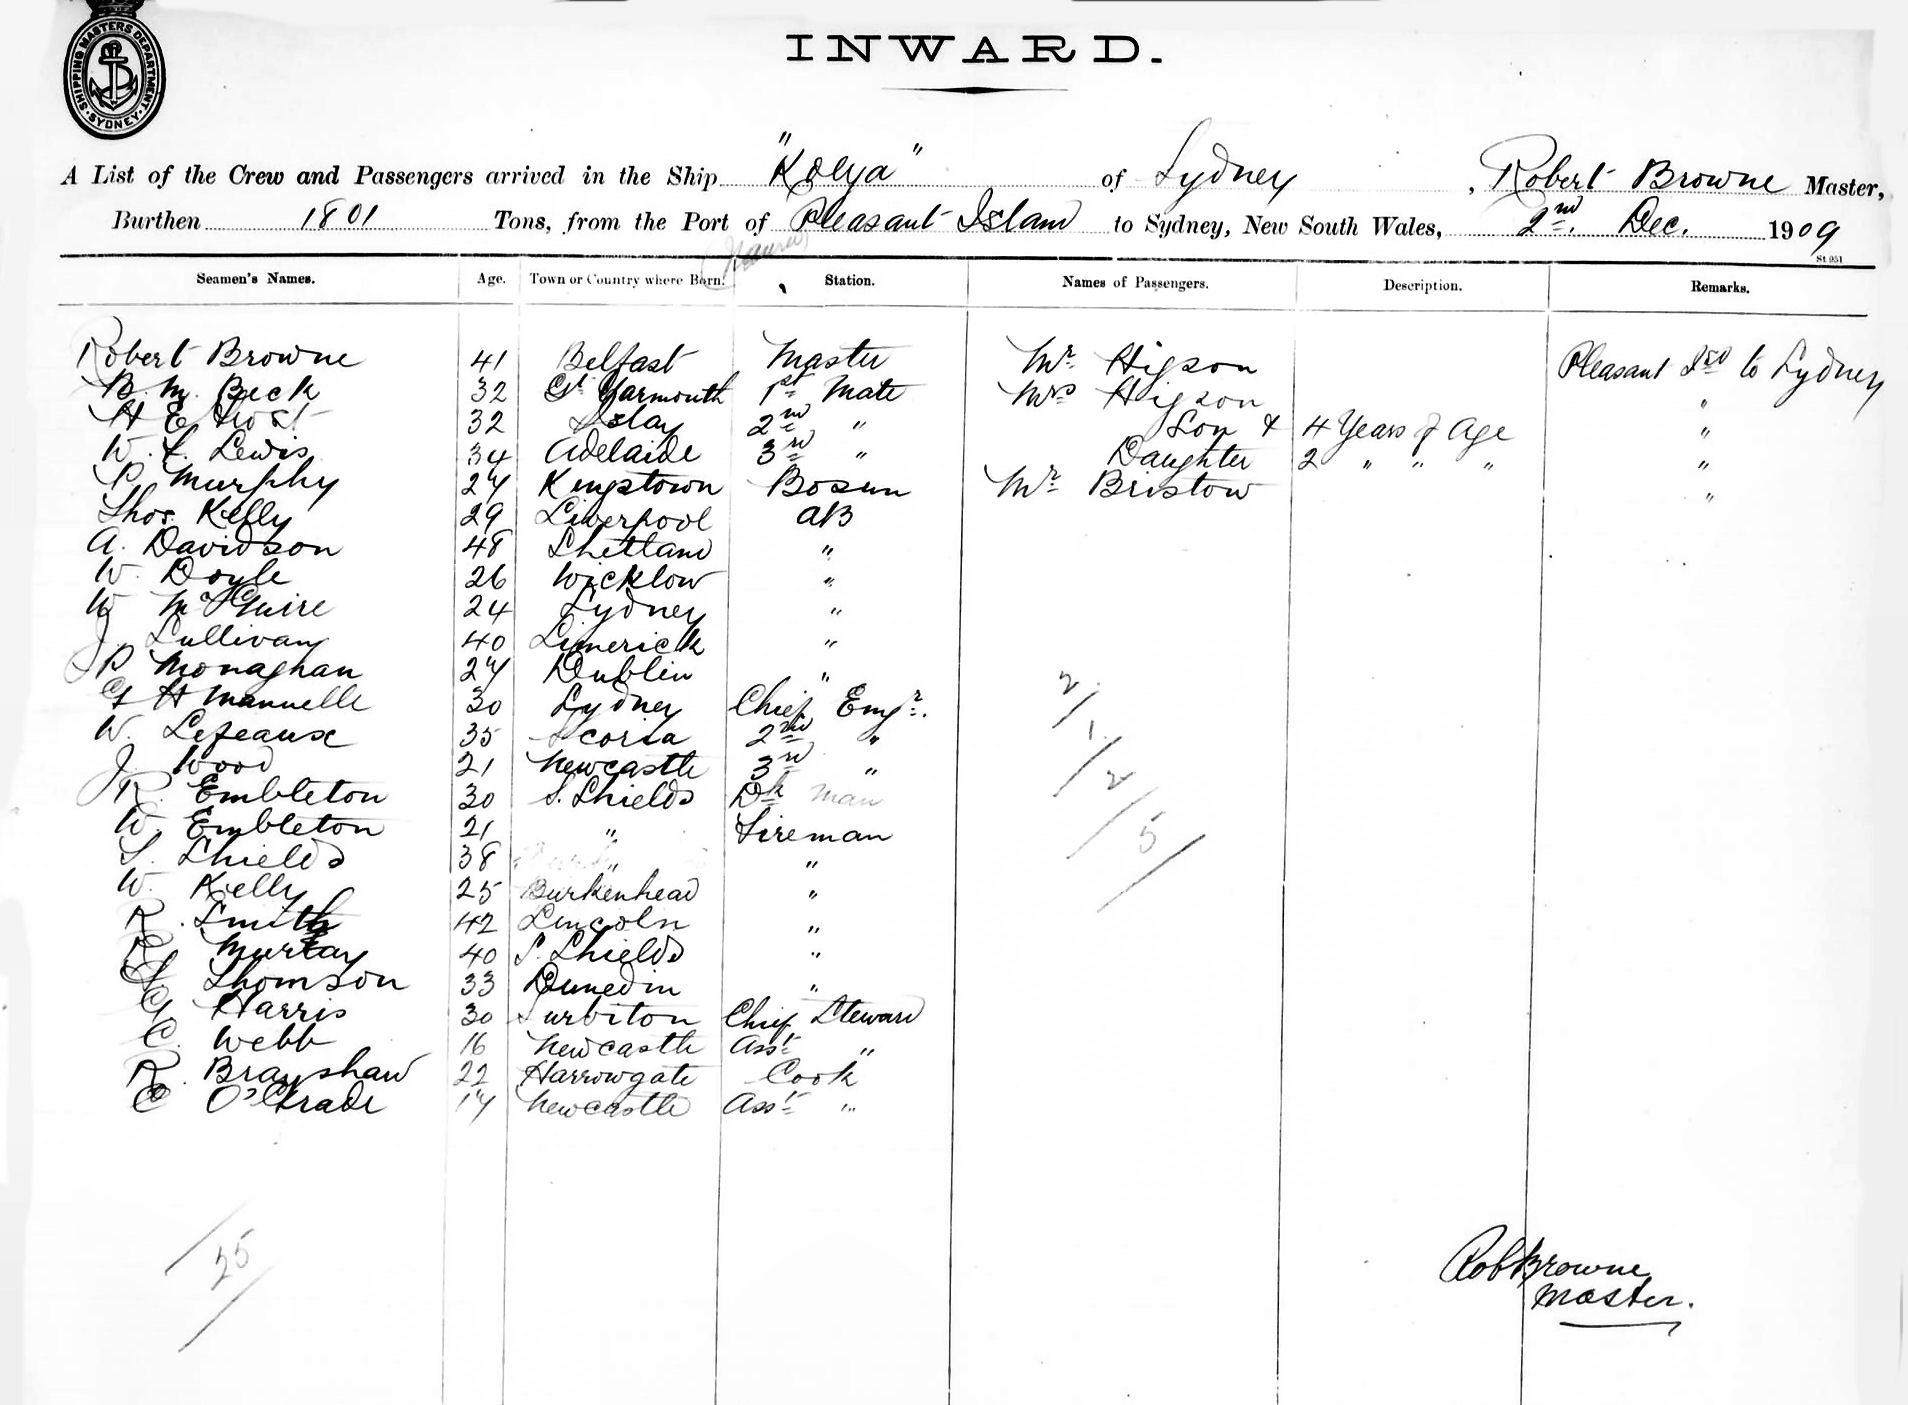 SHIPPING MASTERS DEPARTMENT SYDNEY
INWARD.
A List of the Crew and Passengers arrived in the Ship "Kolya" of Sydney, Robert Browne Master,
Burthen 1801 Tons, from the Port of Pleasant Island to Sydney, New South Wales, 2nd. Dec. 1909
(Nauru)
St 951
Seamen's Names. Age. Town or Country where Born. Station. Names of Passengers. Description. Remarks.
Robert Browne 41 Belfast Master Mr Higson Pleasant Isd to Sydney
B. M. Beck 32 Gt Yarmouth 1st Mate Mrs Higson "
H E Frost 32 Islay 2nd " Son & 4 Years of Age "
W. L. Lewis 34 Adelaide 3rd " Daughter 2 " " " "
P. Murphy 27 Kingstown Bosun Mr Bristow "
Thos. Kelly 29 Liverpool AB
A. Davidson 48 Shetland "
W. Doyle 26 Wicklow "
W McGuire 24 Sydney "
J Sullivan 40 Limerick "
P Monaghan 27 Dublin "
G H Mannelle 30 Sydney Chief Engr.
W. Lezeaux 35 Scotia 2nd "
J. Wood 21 Newcastle 3rd "
R. Embleton 30 S. Shields Dk man
W. Embleton 21 " Fireman
S. Shields 38 " "
W. Kelly 25 Burkenhead "
R. Smith 42 Lincoln "
R Murray 40 S. Shields "
Thomson 33 Dunedin "
G Harris 30 Surbiton Chief Steward
C. Webb 16 Newcastle Asst "
R. Brayshaw 22 Harrowgate Cook
C O'Grade 17 Newcastle Asst "
2/1/2/5/
25
Rob Browne
Master.